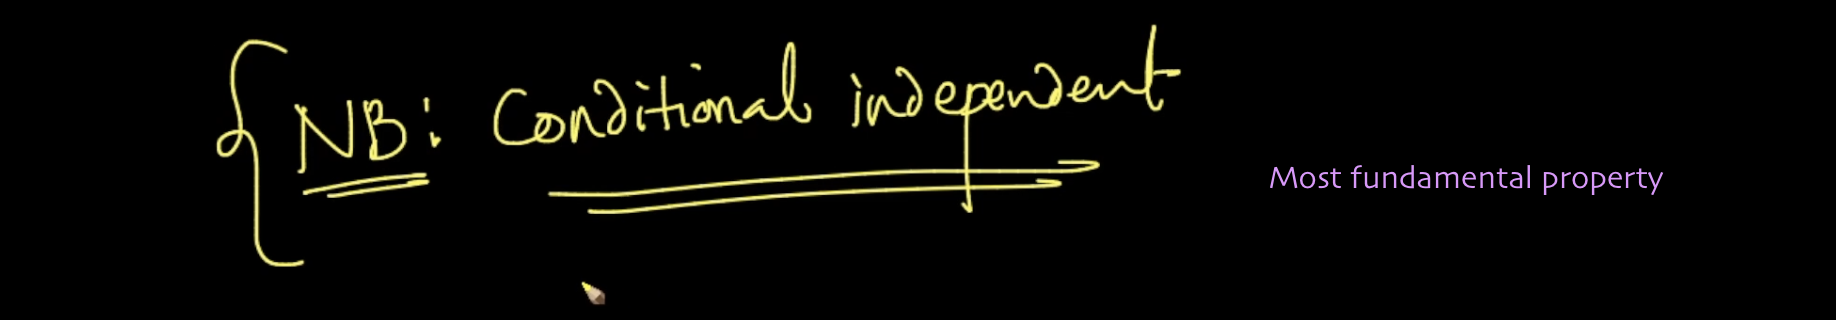 NB: Conditional independent
Most fundamental property